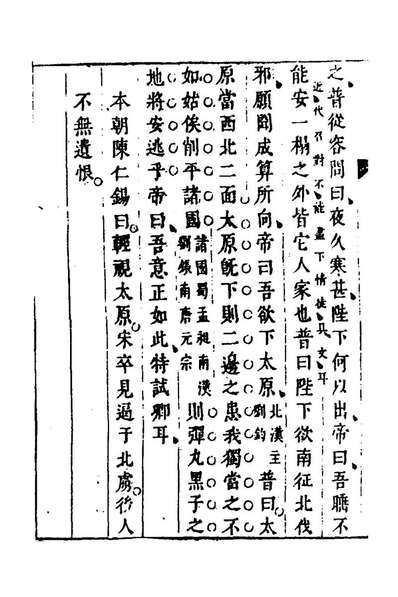 之普從容問曰夜久寒甚陛下何以出帝曰吾睡不
近代召對不能盡下情徒具文耳
能安一榻之外皆它人家也普曰陛下欲南征北伐
邪願聞成算所向帝曰吾欲下太原北漢主劉鈞普曰太
原當西北二面大原旣下則二邊之患我獨當之不
如姑俟削平諸國諸國蜀孟昶南漢劉鋹南唐元宗則彈丸黑子之
地將安逃乎帝曰吾意正如此特試卿耳
本朝陳仁錫曰輕視太原宋卒見逼于北虜後人
不無遺恨